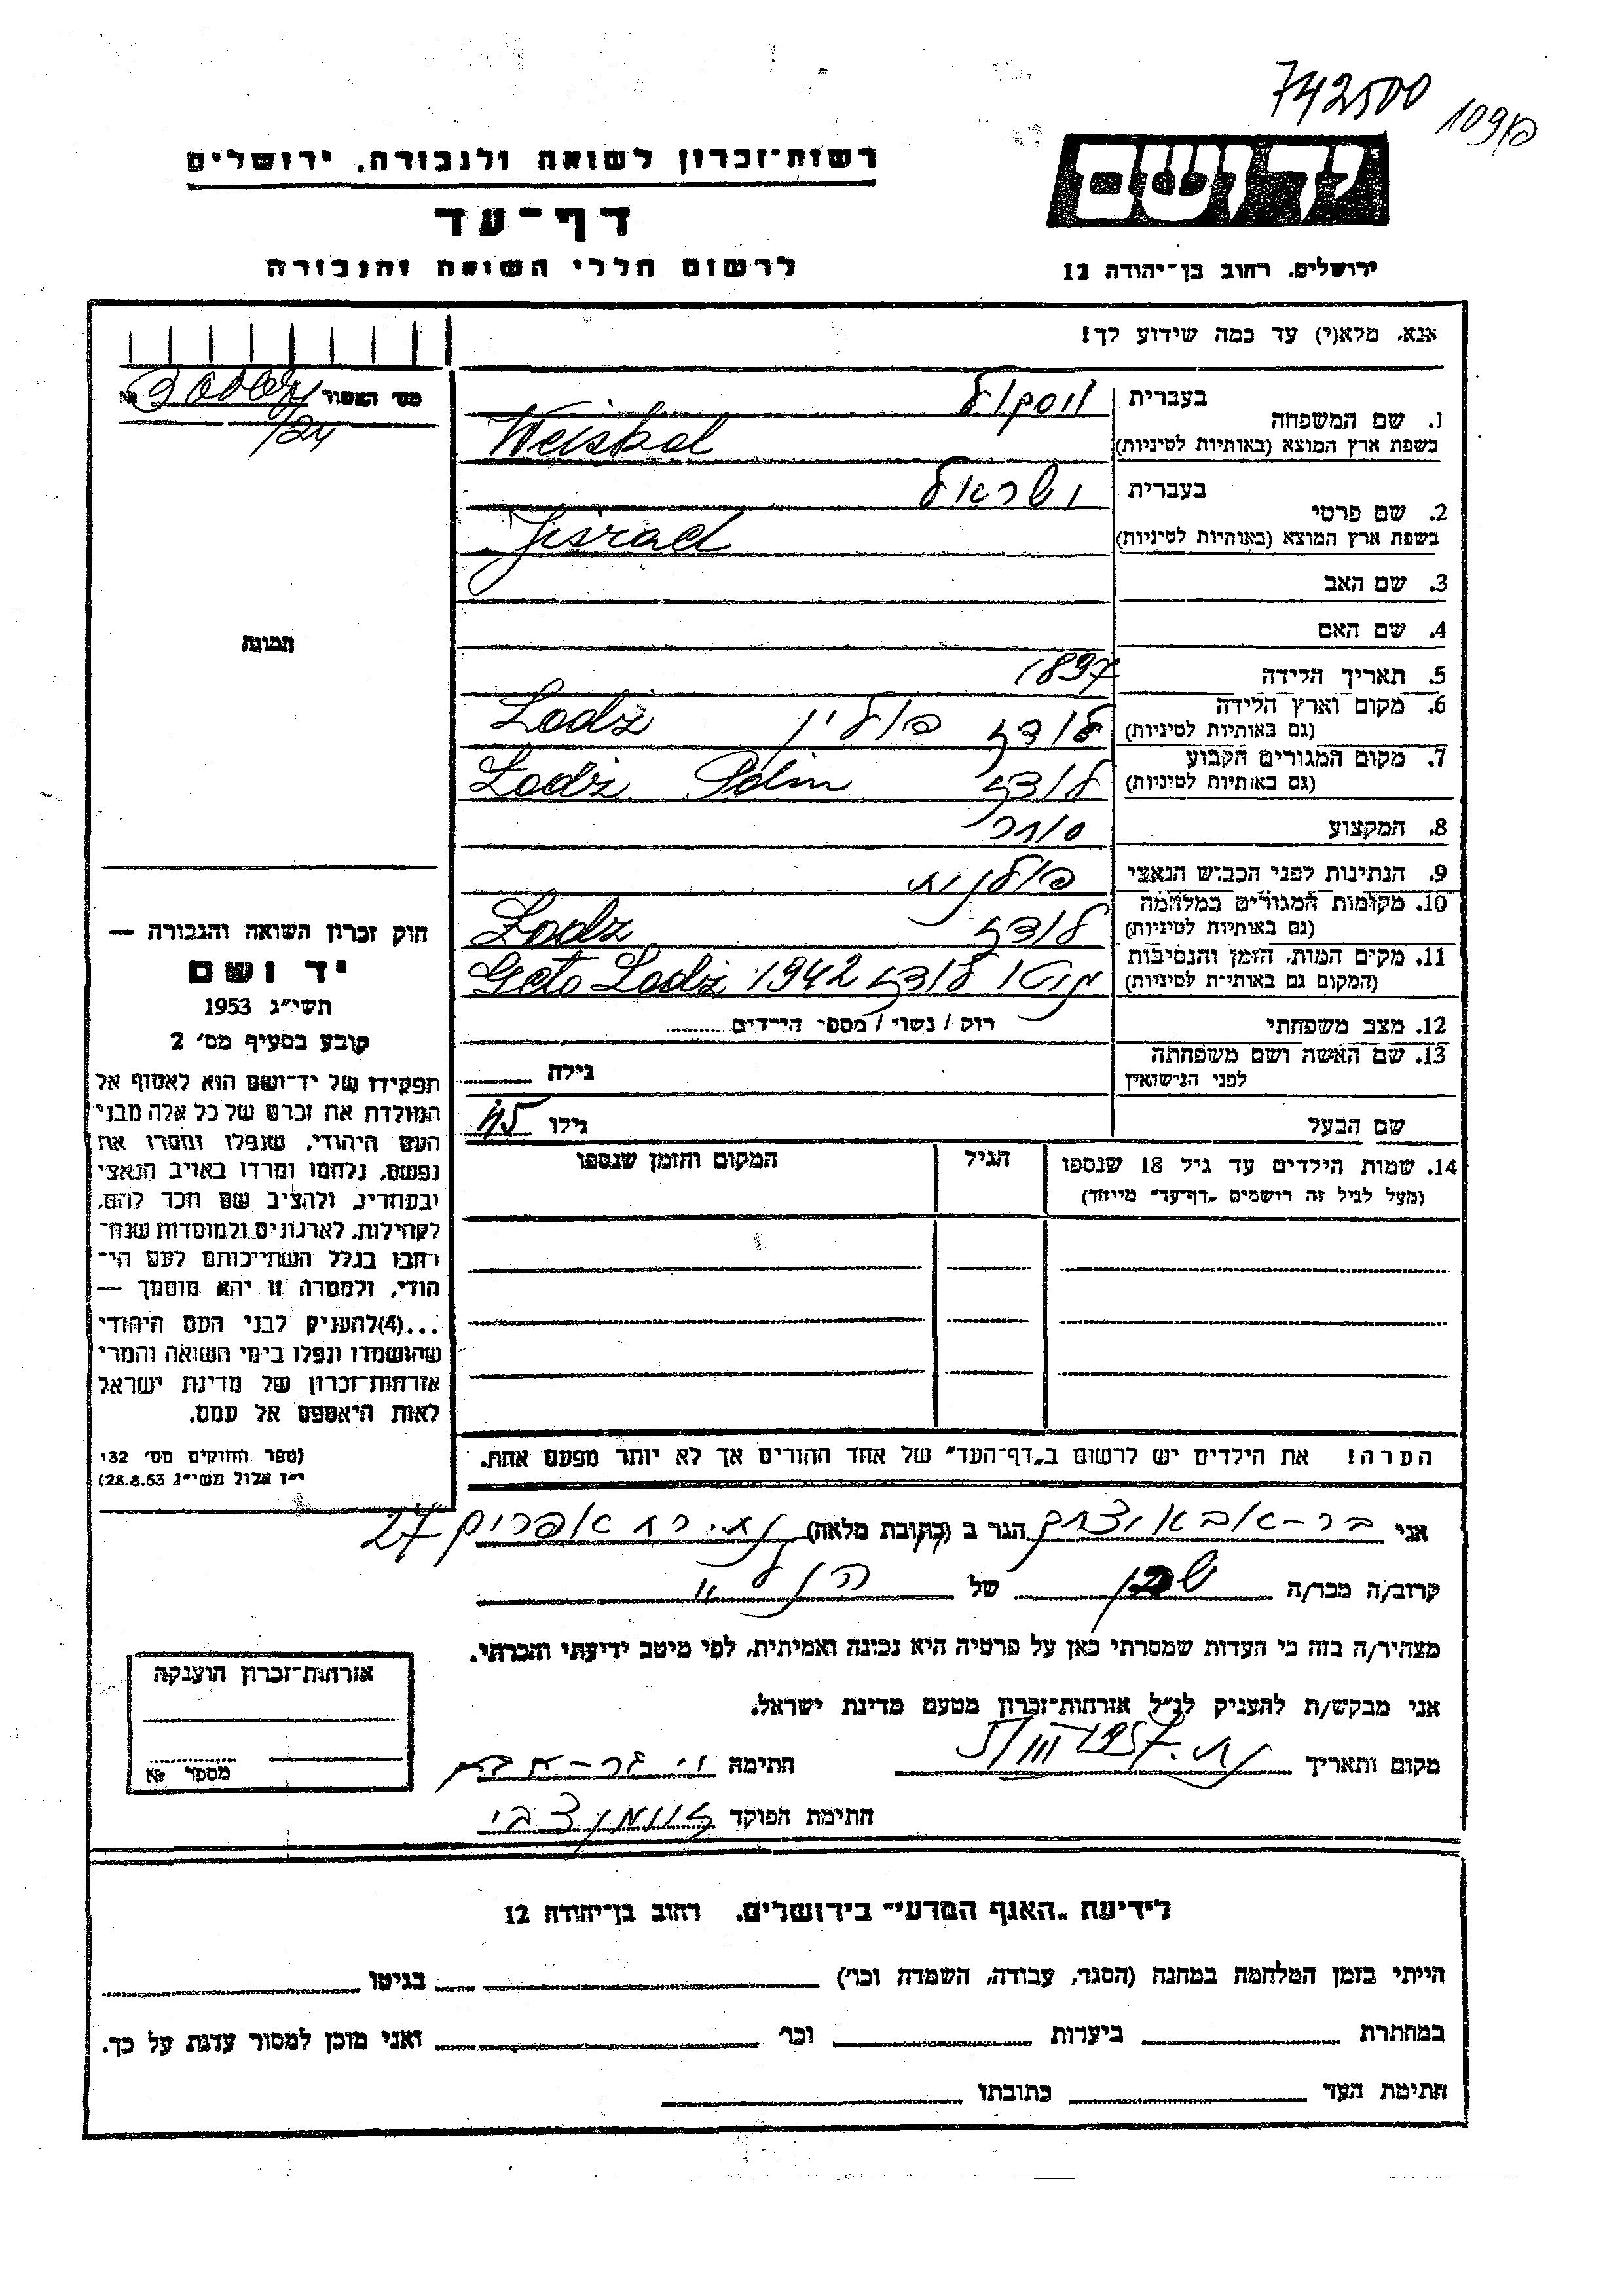 742500
רשות-זכרון לשואה ולגבורה, ירושלים
ידושם
דף-עד
לרשום חללי השואה והגבורה
ירושלים, רחוב בן-יהודה 12
אנא, מלא(י) עד כמה שידוע לך!
מס' האסור №
בעברית
1. שם המשפחה
בשפת ארץ המוצא (באותיות לטיניות) Weiskol
בעברית ישראל
2. שם פרטי
בשפת ארץ המוצא (באותיות לטיניות) Jisrael
3. שם האב
4. שם האם
תמונה
5. תאריך הלידה 1897
6. מקום וארץ הלידה
(גם באותיות לטיניות) לודז פולין Lodz
7. מקום המגורים הקבוע
(גם באותיות לטיניות) לודז Polin Lodz
8. המקצוע סוחר
9. הנתינות לפני הכבוש הנאצי פולנית
10. מקומות המגורים במלחמה
(גם באותיות לטיניות) לודז Lodz
11. מקום המות, הזמן והנסיבות
(המקום גם באותיות לטיניות) לודז 1942 Geto Lodz
12. מצב משפחתי רווק / נשוי / מספר הילדים
13. שם האשה ושם משפחתה
לפני הנישואין גילה
שם הבעל גילו 45
14. שמות הילדים עד גיל 18 שנספו הגיל המקום והזמן שנספו
(מעל לגיל זה רושמים "דף-עד" מיוחד)
חוק זכרון השואה והגבורה —
יד ושם
תשי"ג 1953
קובע בסעיף מס' 2
תפקידו של יד-ושם הוא לאסוף אל
המולדת את זכרם של כל אלה מבני
העם היהודי, שנפלו ומסרו את
נפשם, נלחמו ומרדו באויב הנאצי
ובעוזריו, ולהציב שם וזכר להם,
לקהילות, לארגונים ולמוסדות שנח-
רבו בגלל השתייכותם לעם הי-
הודי, ולמטרה זו יהא מוסמך —
...(4) להעניק לבני העם היהודי
שהושמדו ונפלו בימי השואה והמרי
אזרחות-זכרון של מדינת ישראל
לאות היאספם אל עמם.
(ספר החוקים מס' 132
י"ז אלול תשי"ג 28.8.53)
הערה! את הילדים יש לרשום ב"דף-העד" של אחד ההורים אך לא יותר מפעם אחת.
אני בר-אבא יצחק הגר ב (כתובת מלאה) אפרים 27
קרוב/ה מכר/ה שכן של הנ"ל
מצהיר/ה בזה כי העדות שמסרתי כאן על פרטיה היא נכונה ואמיתית, לפי מיטב ידיעתי והכרתי.
אני מבקש/ת להעניק לנ"ל אזרחות-זכרון מטעם מדינת ישראל.
מקום ותאריך חתימה י. בר-אבא
חתימת הפוקד צבי
אזרחות-זכרון הוענקה
מספר №
לידיעת "האגף המדעי" בירושלים, רחוב בן-יהודה 12
הייתי בזמן המלחמה במחנה (הסגר, עבודה, השמדה וכו') בגיטו
במחתרת ביערות וכו' ואני מוכן למסור עדות על כך.
חתימת העד כתובתו